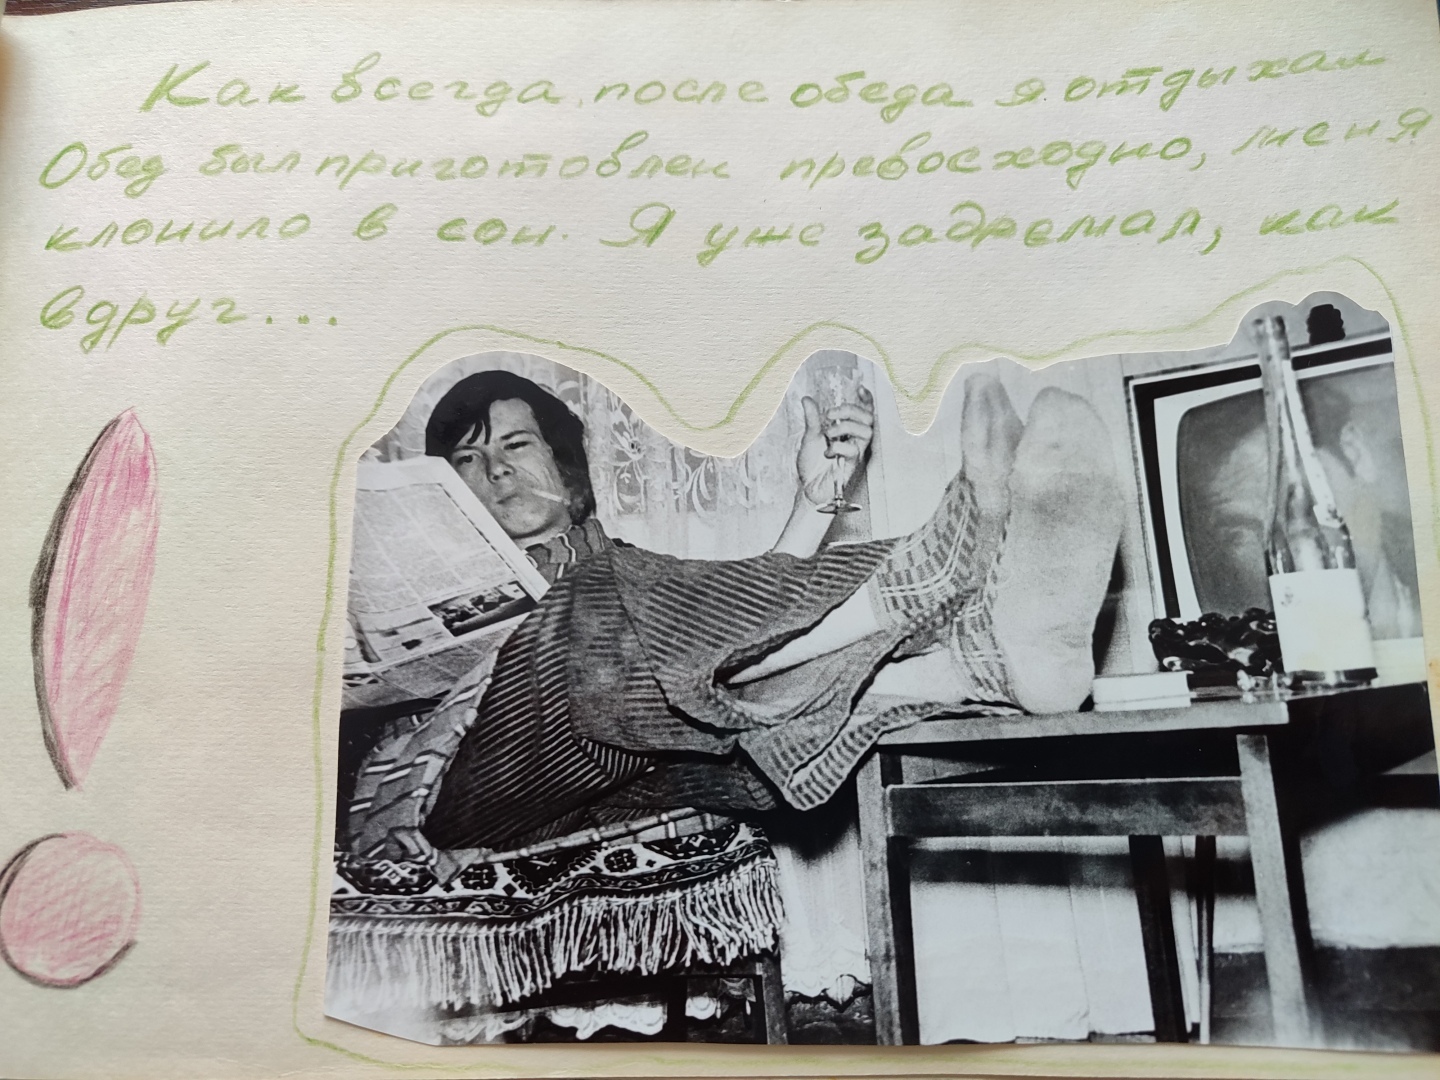 Как всегда, после обеда я отдыхал
Обед был приготовлен превосходно, меня
клонило в сон. Я уже задремал, как
вдруг...
!